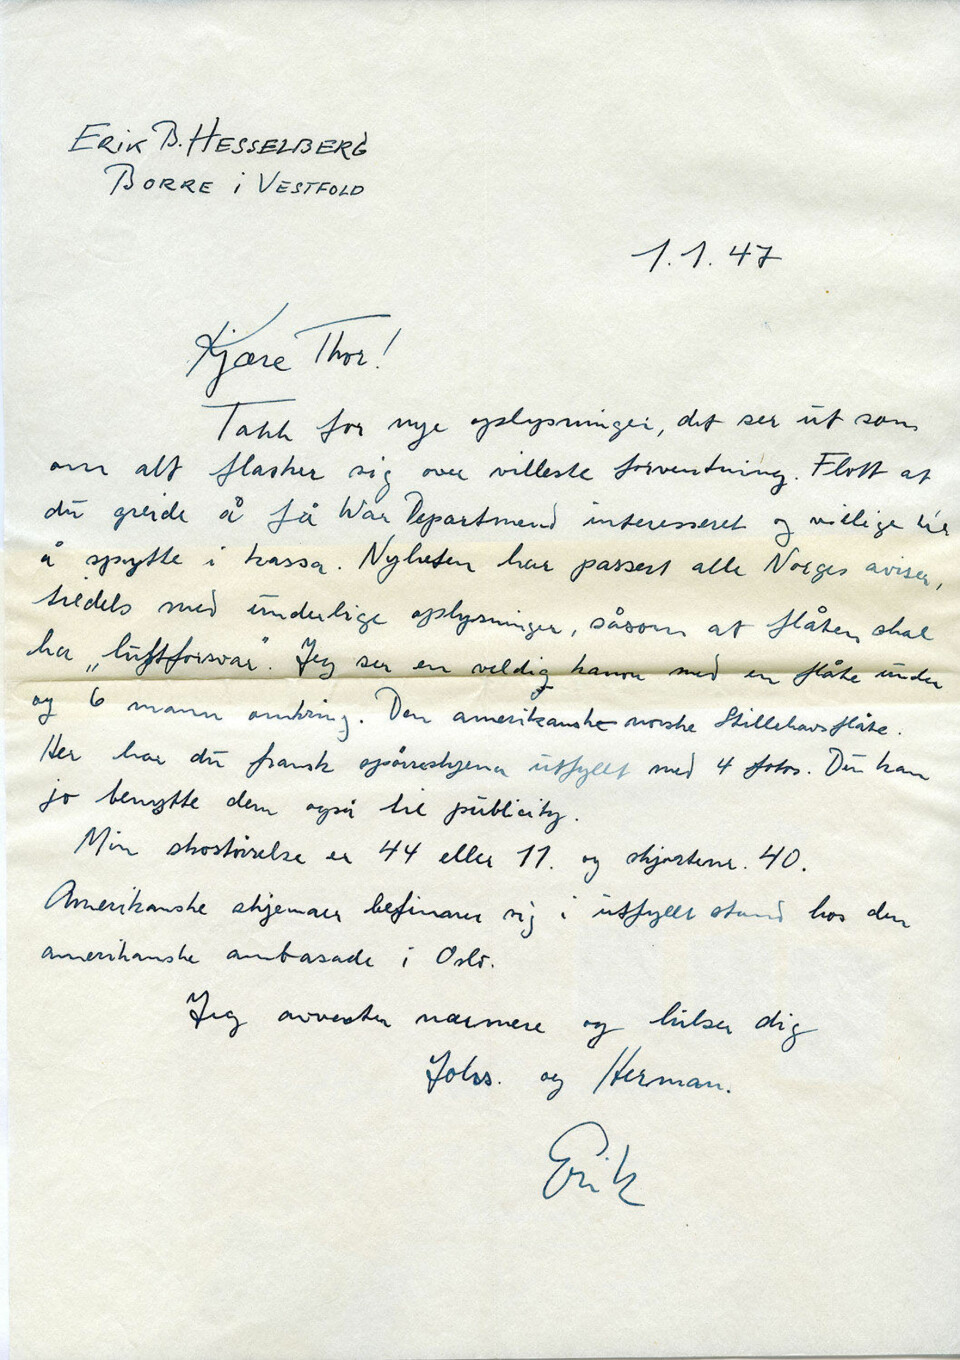 ERIK B. HESSELBERG
BORRE i VESTFOLD
1.1.47
Kjære Thor!
Takk for nye oplysninger, det ser ut som
om alt flasker sig over villeste forventning. Flott at
du greide å få War Departmend interesseret og villige til
å spytte i kassa. Nyheten har passert alle Norges aviser,
tildels med underlige oplysninger, såsom at flåten skal
ha „luftforsvar". Jeg ser en veldig kanon med en flåte under
og 6 mann omkring. Den amerikanske-norske Stillehavsflåte.
Her har du fransk spörreskjema utfyllt med 4 fotos. Du kan
jo benytte dem også til publicity.
Min skostörrelse er 44 eller 11. og skjortenr. 40.
Amerikanske skjemaer befinner sig i utfyllt stand hos den
amerikanske ambasade i Oslo.
Jeg avventer nærmere og hilser dig
Johs. og Herman.
Erik